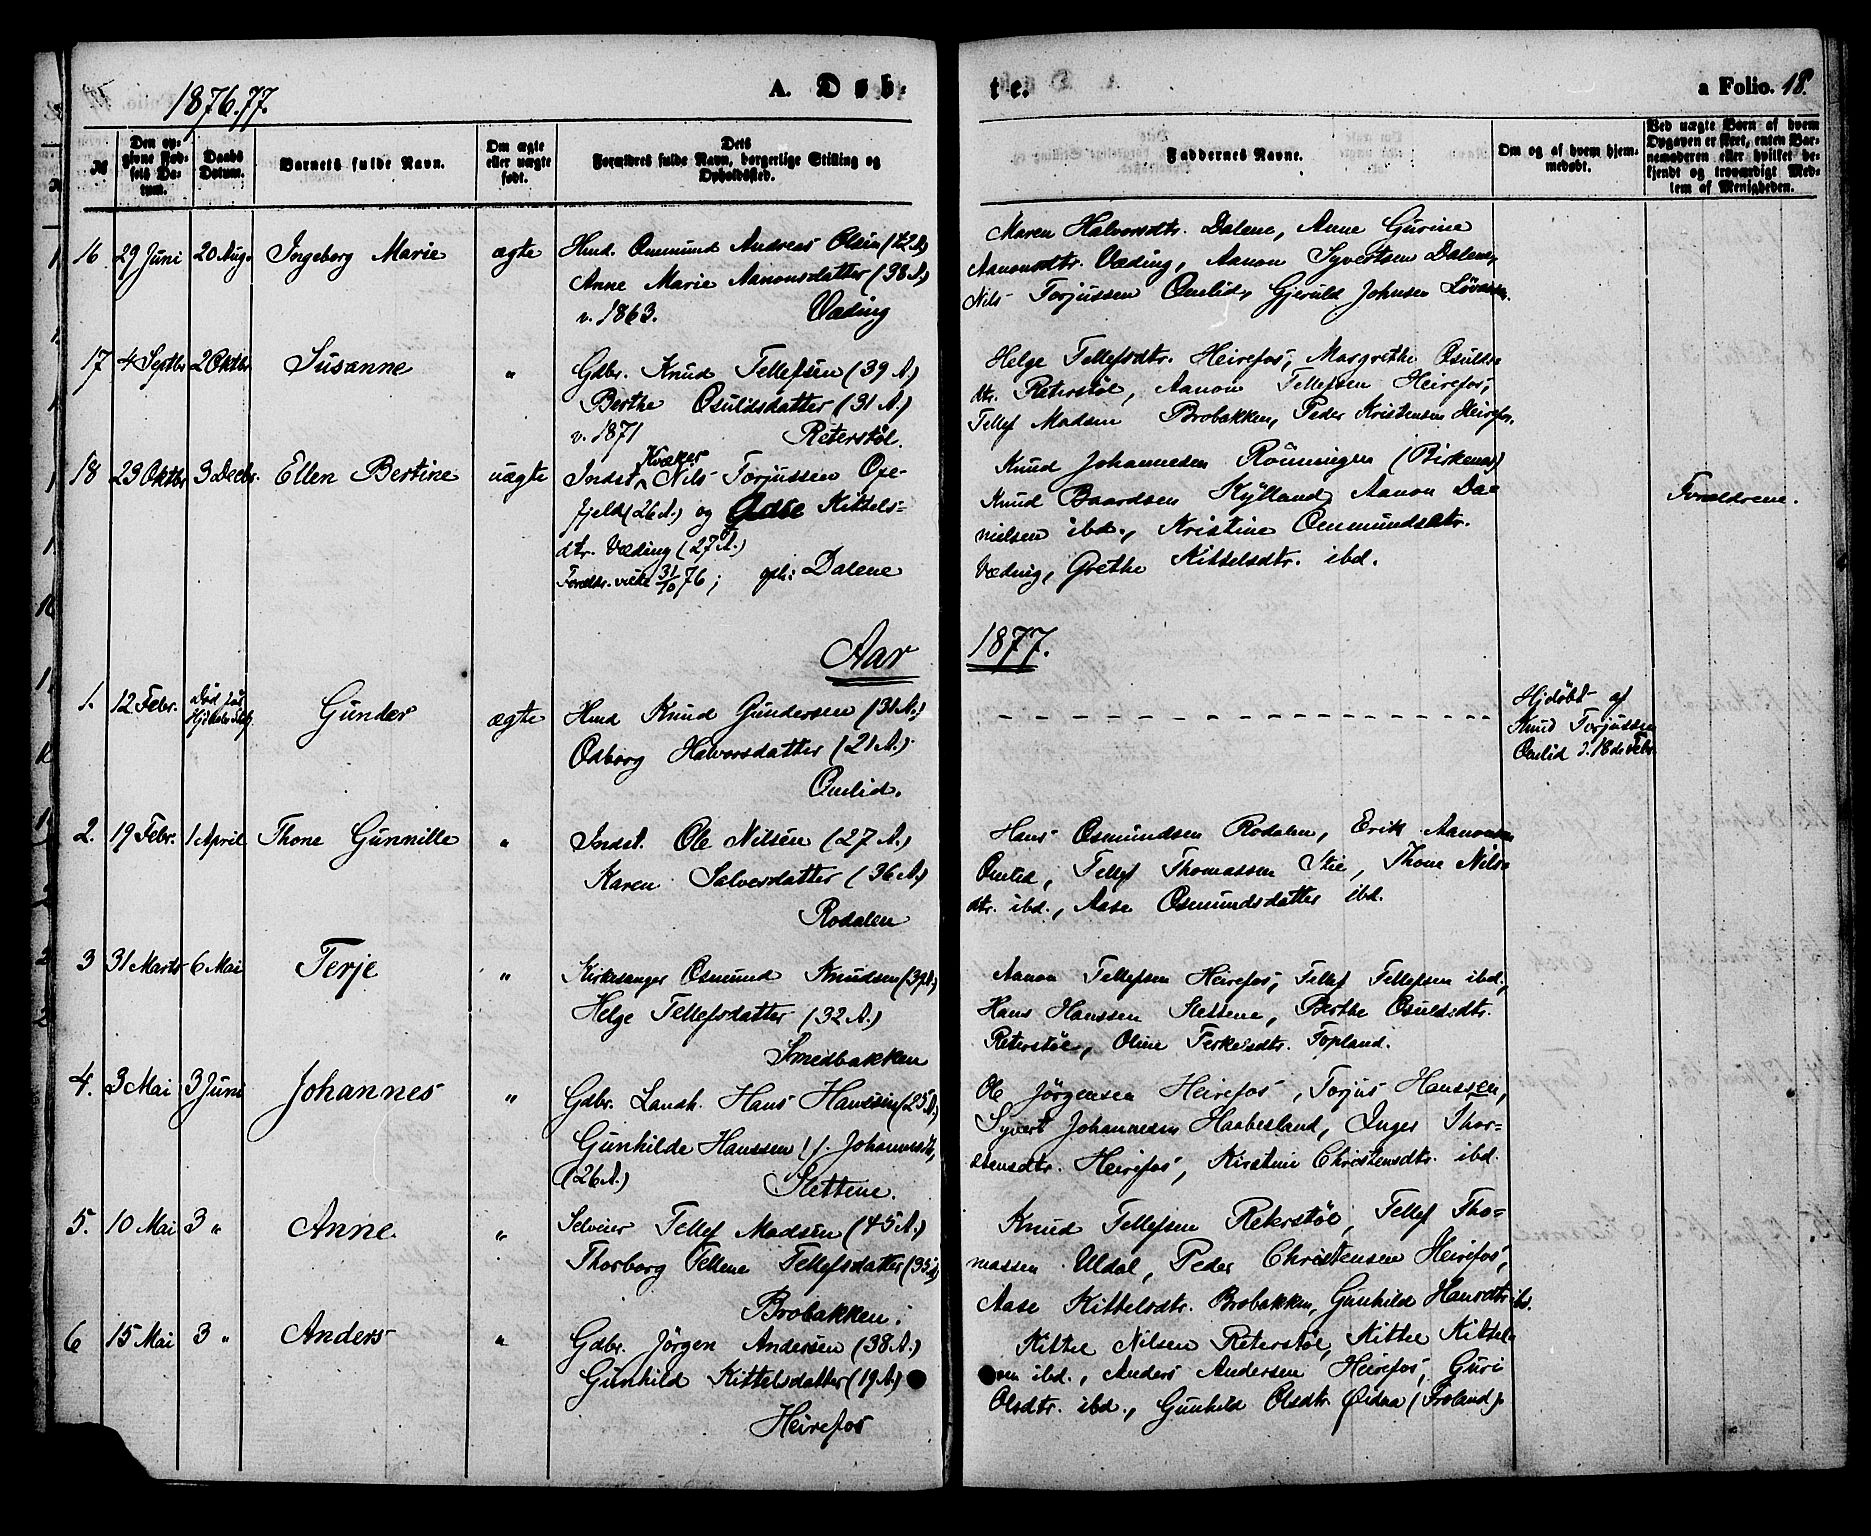 1876.77.
A. Døb-
te.
a Folio. 18.
№
Den op-
givne Fød-
sels Da-
tum.
Daabs
Datum.
Barnets fulde Navn.
Om ægte
eller uægte
født.
Dets
Forældres fulde Navn, borgerlige Stilling og
Opholdssted.
Faddernes Navne.
Om og af hvem hjem-
medøbt.
Ved uægte Børn af hvem
Opgaven er sket, enten Bar-
nemoderen eller hvilket be-
kjendt og troværdigt Med-
lem af Menigheden.
16 29 Juni 20 Aug. Ingeborg Marie ægte
Hmd. Onmund Andreas Olsen (42 A)
Anne Marie Aanonsdatter (38 A.)
v. 1863. Væding
Maren Halvorsdtr. Dalene, Anne Gurine
Aanonsdtr. Væding, Aanon Syvertsen Dalene,
Nils Torjussen Omlid, Gjeruld Johnsen
17 4 Septbr 2 Oktbr Susanne "
Gdbr. Knud Tellefsen (39 A)
Berthe Osuldsdatter (31 A.)
v. 1871 Reterstøl.
Helge Tellefsdtr. Heirefos, Margrethe Osulds
dtr. Reterstøl, Aanon Tellefsen Heirefos,
Tellef Madsen Brobakken, Peder Kristensen Heirefos.
18 23 Oktbr 3 Decbr. Ellen Bertine uægte
Kvæker
Indst. Nils Torjussen Ose-
fjeld (26 A.) og Aase Kittels-
dtr. Væding (27 A.)
Foreldr. viede 31/10 76; oph: Dalene
Knud Johannesen Rönningen (Birkenes)
Knud Baardsen Kylland, Aanon Da-
nielsen ibd., Kristine Onmundsdtr.
Væding, Grethe Kittelsdtr. ibd.
Forældrene.
Aar
1877.
1. 12 Febr. Død før Gunder ægte
Hmd Knud Gundersen (31 A.)
Osborg Halvorsdatter (21 A.)
Omlid.
Hjdöbt af
Knud Torjussen
Omlid d. 18de Febr.
2. 19 Febr. 1 April Thone Gunnille "
Indst. Ole Nilsen (27 A.)
Karen Salvesdatter (36 A.)
Rodalen
Hans Osmundsen Rodalen, Erik Aanonsen
Omlid, Tellef Thomassen Stie, Thone Nils-
dtr. ibd., Aase Osmundsdatter ibd.
3 31 Marts 6 Mai Terje "
Kirkesanger Osmund Knudsen (39 A.)
Helge Tellefsdatter (32 A.)
Smedbakken
Aanon Tellefsen Heirefos, Tellef Tellefsen ibd.,
Hans Hanssen Slettene, Berthe Osuldsdtr.
Reterstøl, Oline Terkelsdtr. Fopland.
4. 3 Mai 3 Juni Johannes "
Gdbr. Landh. Hans Hanssen (25 A.)
Gunhilde Hanssen f. Johannesdtr,
(26 A.) Slettene.
Ole Jörgensen Heirefos, Torjus Hanssen,
Syvert Johannesen Haabesland, Inger Thor-
stensdtr. Heirefos, Kirstine Christensdtr. ibd.
5. 10 Mai 3 " Anne "
Selveier Tellef Madsen (45 A.)
Thorborg Tellene Tellefsdatter (35 A)
Brobakken.
Knud Tellefsen Reterstøl, Tellef Tho-
massen Uldal, Peder Christensen Heirefos,
Aase Kittelsdtr. Brobakken, Gunhild Hansdtr ibd.
6 15 Mai 3 " Anders "
Gdbr. Jörgen Andersen (38 A.)
Gunhild Kittelsdatter (19 A)
Heirefos
Kittel Nilsen Reterstøl, Kittel Kittel-
sen ibd., Anders Andersen Heirefos, Guri
Olsdtr. ibd., Gunhild Olsdtr. Øidna (Froland).